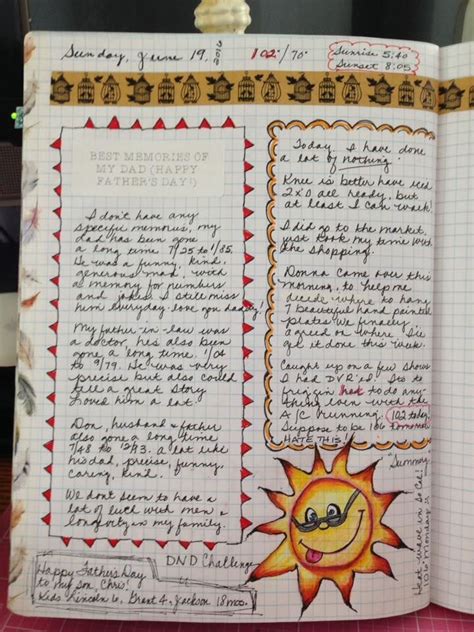 Sunday, June 19,
102°/70°
Sunrise 5:40
Sunset 8:05
BEST MEMORIES OF
MY DAD (HAPPY
FATHER'S DAY!)
I don't have any
specific memories, my
dad has been gone
a long time 7/25 to 1/85.
He was a funny, kind,
generous man, with
a memory for numbers
and jokes. I still miss
him everyday. love you daddy!
My father-in-law was
a doctor, he's also been
gone, a long time. 1/04
to 9/79. He was very
precise but also could
tell a great story.
Loved him a lot.
Don, husband & father
also gone a long time
7/48 to 12/93. A lot like
his dad, precise, funny,
caring, kind.
We don't seem to have a
lot of luck with men &
longevity in my family.
DND Challenge
Happy Father's Day
to my son, Chris!
Kids Lincoln 6, Grant 4, Jackson 18 mos.
Today, I have done
a lot of nothing.
Knee is better have iced
2X'D all ready, but
at least I can walk.
I did go to the market,
just took my time with
the shopping.
Donna came over this
morning, to help me
decide where to hang
7 beautiful hand painted
plates. We finally
agreed on where. I'll
get it done this week.
Caught up on a few shows
I had DVR'ed. Its to
hot to do any-
thing even with the
A/C running. 102 today.
Suppose to be 106 tomorrow
HATE THIS!
"Summer"
Heat wave in so. Cal!